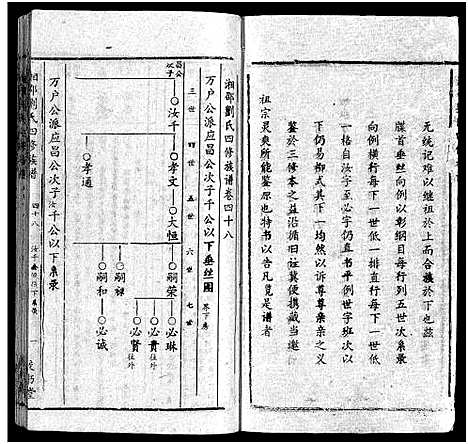 无统记难以继祖於上而合族於下也兹
牒首垂丝向例以彰纲目每行列五世次系录
向例横行每下一世低一排直行每下一世低
一格自汝字至必字仍直书平例世字班次以
下仍易柳式其下一均然以诉尊尊亲亲之义
鉴於三修本之益沿循旧证冀便携藏当邀
祖宗灵爽所能鉴原也特书以告凡览是谱者
湘邵劉氏四修族谱卷四十八
万户公派应昌公次子汝千公以下垂丝图
三世
四世
五世
六世
七世
昌公次子
汝千
孝文
大恒
嗣荣
必琳
必贵 往外
必贤 往外
嗣禄
嗣和
必诚
孝通
万户公派应昌公次子汝千公以下系录
湘邵劉氏四修族谱
四十八
一